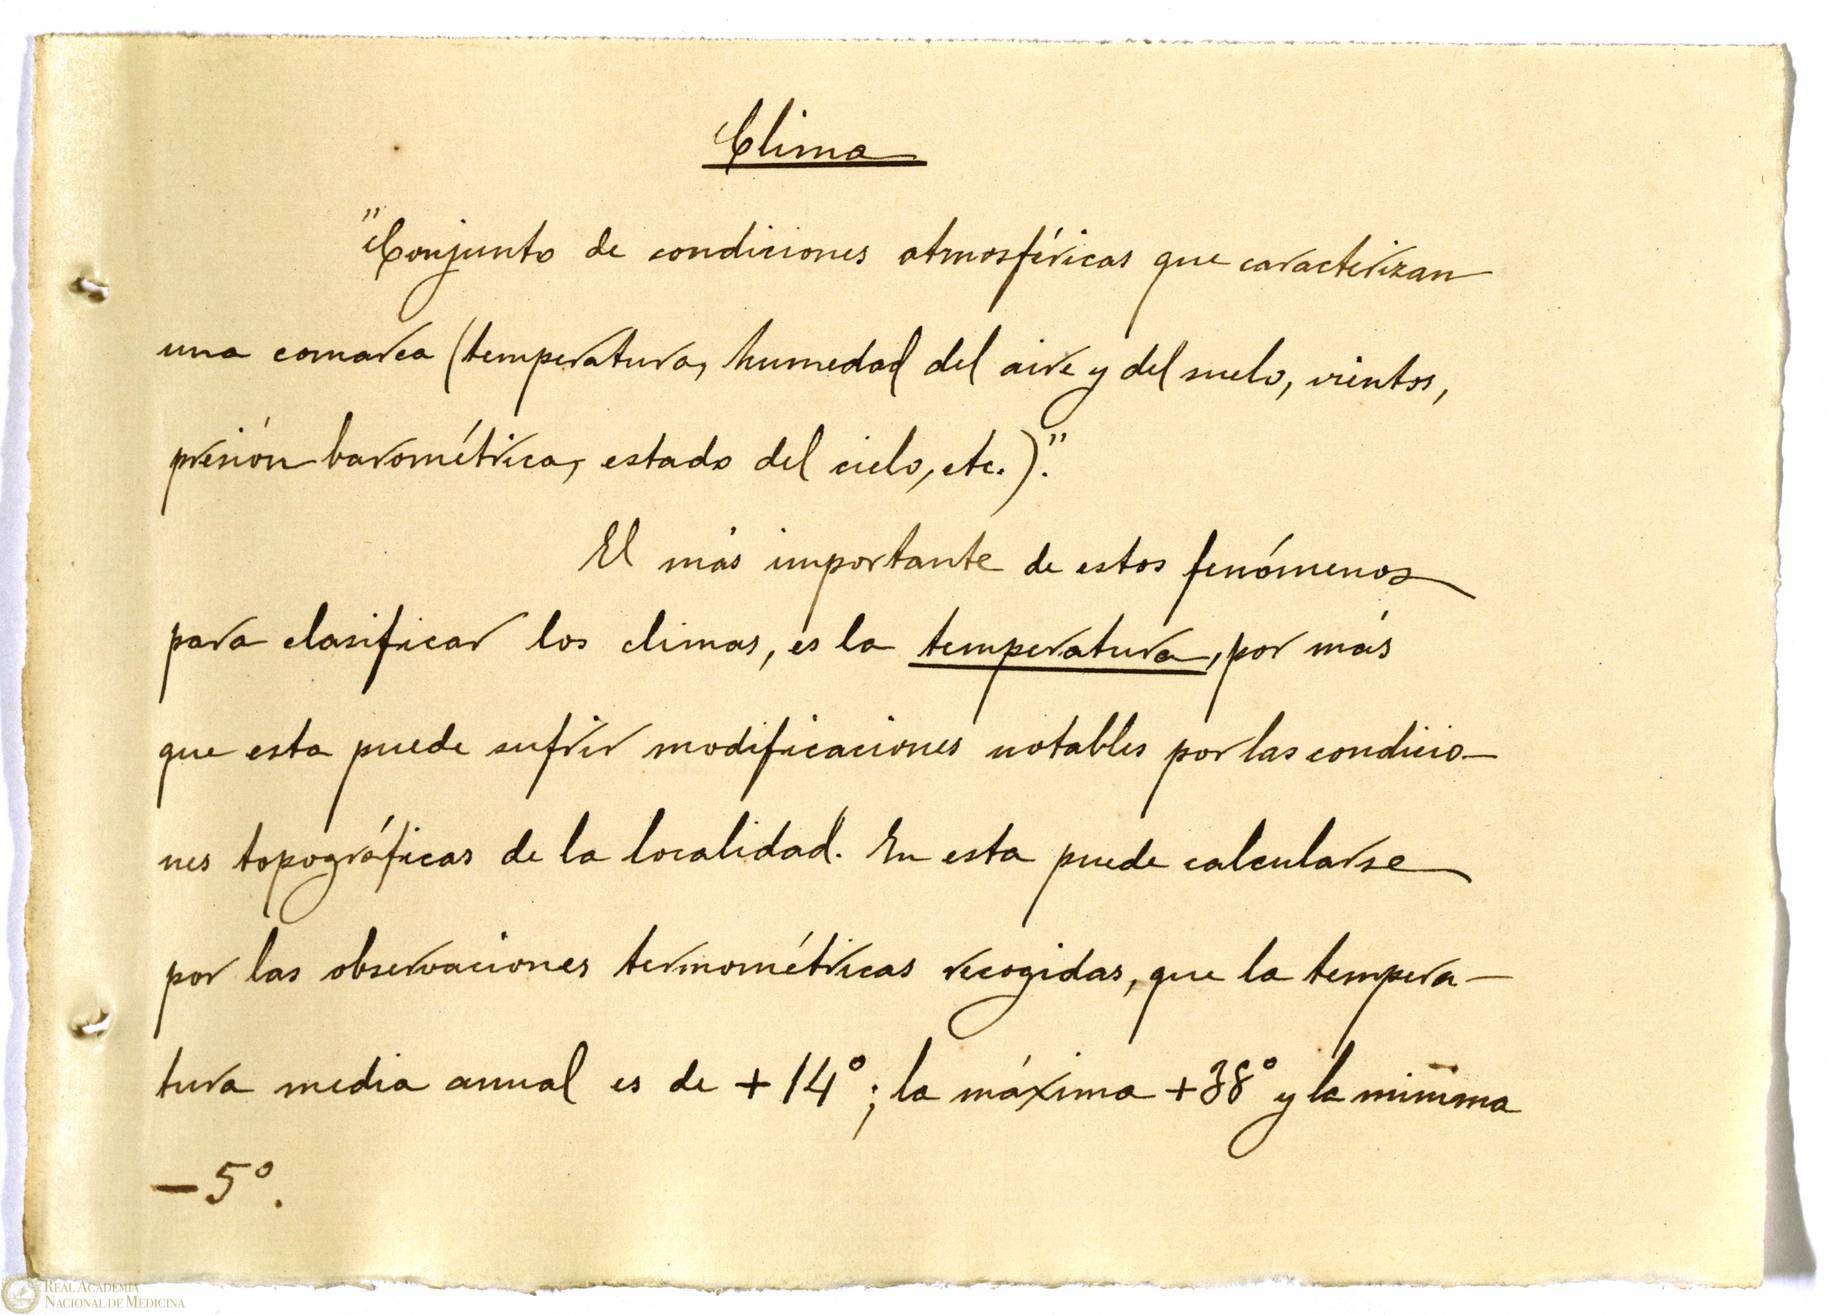 Clima
"Conjunto de condiciones atmosféricas que caracterizan
una comarca (temperatura, humedad del aire y del suelo, vientos,
presión barométrica, estado del cielo, etc.)."
El más importante de estos fenómenos
para clasificar los climas, es la temperatura, por más
que esta puede sufrir modificaciones notables por las condicio-
nes topográficas de la localidad. En esta puede calcularse
por las observaciones termométricas recogidas, que la tempera-
tura media anual es de +14°; la máxima +38° y la minima
-5°.
REAL ACADEMIA
NACIONAL DE MEDICINA